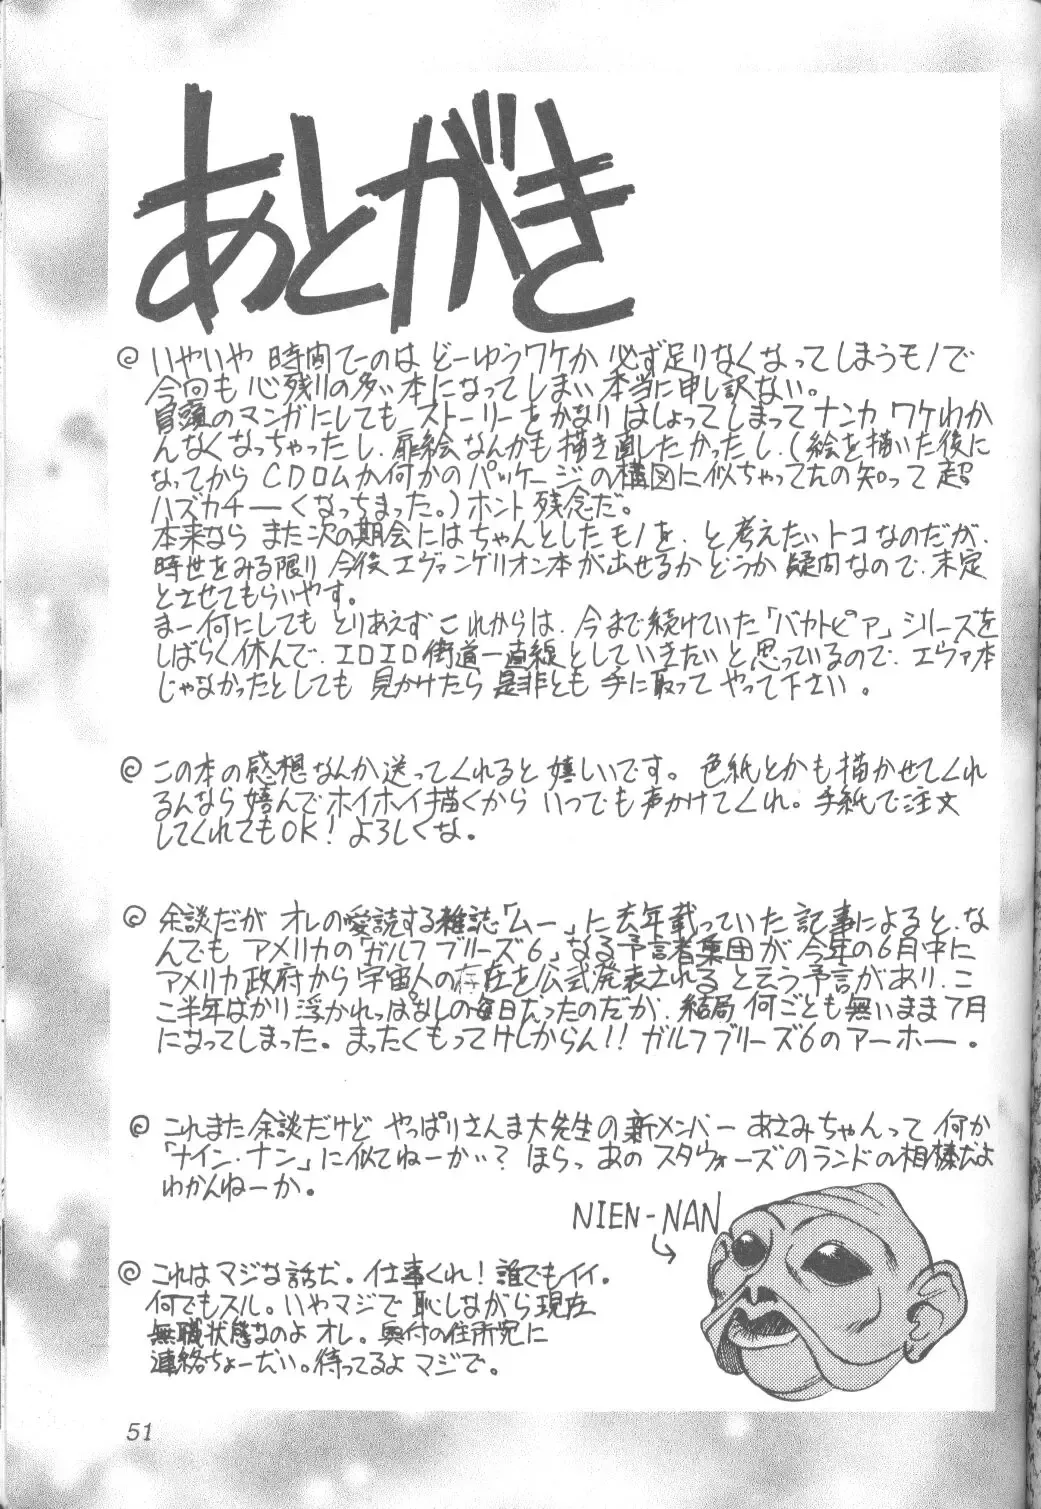 あとがき
いやいや 時間てーのは どーゆうワケか 必ず足りなくなってしまうモノで
今回も 心残りの多い本になってしまい 本当に申し訳ない。
冒頭のマンガにしても ストーリーをかなり はしょってしまってナンカ ワケわか
んなくなっちゃったし、扉絵なんかも描き直したかったし、(絵を描いた後に
なってから CDロムか何かのパッケージの構図に似ちゃってんの知って超
ハズカチーくなっちまった。)ホント残念だ。
本来なら また次の期会にはちゃんとしたモノを、と考えたいトコなのだが、
時世をみる限り 今後エヴァンゲリオン本が出せるかどうか疑問なので、未定
とさせてもらいやす。
まー何にしても とりあえず これからは、今まで続けていた「バカトピア」シリーズを
しばらく休んで、エロエロ街道一直線としていきたいと思っているので、エヴァ本
じゃなかったとしても 見かけたら 是非とも 手に取って やって下さい。
この本の感想なんか送ってくれると嬉しいです。色紙とかも描かせてくれ
るんなら嬉んでホイホイ描くから いつでも声かけてくれ。手紙で注文
してくれてもOK!よろしくな。
余談だが オレの愛読する雑誌「ムー」に去年載っていた記事によると、な
んでも アメリカの「ガルフブリーズ6」なる予言者集団が 今年の6月中に
アメリカ政府から宇宙人の存在を公式発表されると云う予言があり、こ
こ半年ばかり浮かれっぱなしの毎日だったのだが、結局 何ごとも無いまま7月
になってしまった。まったくもってけしからん!!ガルフブリーズ6のアーホー。
これまた余談だけど やっぱりさんま大先生の新メンバー あさみちゃんって 何か
「ナイン・ナン」に似てねーか?ほらっ あの スタウォーズのランドの相棒だよ
わかんねーか。
NIEN-NAN
これはマジな話だ。仕事くれ!誰でもイイ。
何でもスル。いやマジで 恥しながら現在
無職状態なのよ オレ。奥付の住所宛に
連絡ちょーだい。待ってるよ マジで。
51